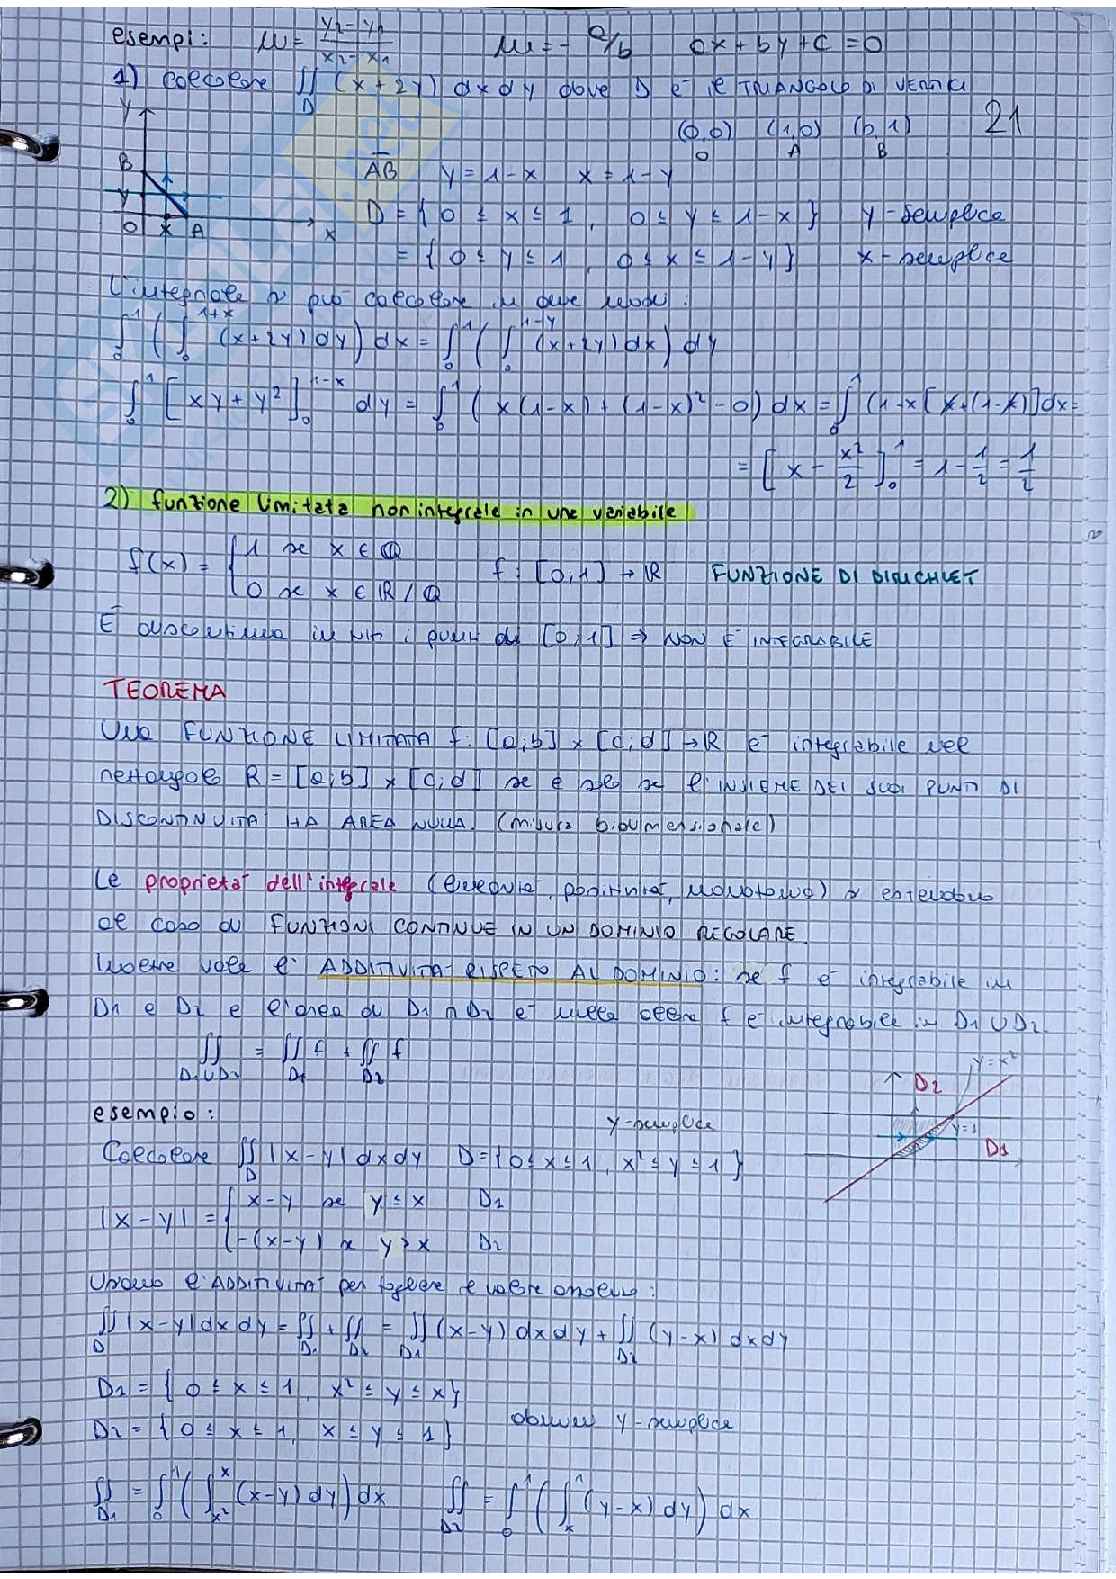 esempi: m = (y₂-y₁)/(x₂-x₁) m = - a/b ax+by+c=0
1) Calcolare ∬_D (x+2y) dxdy dove D è il TRIANGOLO DI VERTICI
(0,0) (1,0) (0,1) 21
O A B
y
B
y
O x A x
AB y=1-x x=1-y
D = {0 ≤ x ≤ 1, 0 ≤ y ≤ 1-x} y-semplice
= {0 ≤ y ≤ 1, 0 ≤ x ≤ 1-y} x-semplice
L'integrale si può calcolare in due modi:
∫₀¹ (∫₀^{1+x} (x+2y) dy) dx = ∫₀¹ (∫₀^{1-y} (x+2y) dx) dy
∫₀¹ [xy+y²]₀^{1-x} dy = ∫₀¹ (x(1-x)+(1-x)²-0) dx = ∫₀¹ (1-x[x+(1-x)] dx =
= [x - x²/2]₀¹ = 1 - 1/2 = 1/2
2) funzione limitata non integrale in una variabile
f(x) = { 1 se x ∈ Q
0 se x ∈ R / Q f: [0,1] → R FUNZIONE DI DIRICHLET
È discontinua in tutti i punti di [0,1] ⇒ NON È INTEGRABILE
TEOREMA
Una FUNZIONE LIMITATA f: [a,b] x [c,d] → R è integrabile nel
rettangolo R = [a,b] x [c,d] se e solo se l'INSIEME DEI SUOI PUNTI DI
DISCONTINUITÀ HA AREA NULLA (misura bidimensionale)
Le proprietà dell'integrale (linearità, positività, monotonia) si estendono
al caso di FUNZIONI CONTINUE IN UN DOMINIO REGOLARE.
Inoltre vale l'ADDITIVITÀ RISPETTO AL DOMINIO: se f è integrabile in
D1 e D2 e l'area di D1 ∩ D2 è nulla allora f è integrabile in D1 ∪ D2
∬_{D1∪D2} = ∬_{D1} f + ∬_{D2} f
y=x²
D2
y=1
D1
esempio:
y-semplice
Calcolare ∬_D |x-y| dxdy D = {0 ≤ x ≤ 1, x² ≤ y ≤ 1}
|x-y| = { x-y se y ≤ x D1
-(x-y) se y > x D2
Usiamo l'ADDITIVITÀ per togliere il valore assoluto:
∬_D |x-y| dxdy = ∬_{D1} + ∬_{D2} = ∬_{D1} (x-y) dxdy + ∬_{D2} (y-x) dxdy
D1 = {0 ≤ x ≤ 1, x² ≤ y ≤ x}
D2 = {0 ≤ x ≤ 1, x ≤ y ≤ 1} y-semplice
∬_{D1} = ∫₀¹ (∫_{x²}^{x} (x-y) dy) dx ∬_{D2} = ∫₀¹ (∫_x^1 (y-x) dy) dx